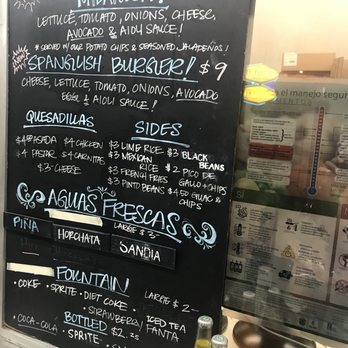 MILANESA!
LETTUCE, TOMATO, ONIONS, CHEESE,
AVOCADO & AIOLI SAUCE!
* SERVED W/ OUR POTATO CHIPS & SEASONED JALAPEÑOS!
SPANGLISH BURGER! $9
CHEESE, LETTUCE, TOMATO, ONIONS, AVOCADO
EGG! & AIOLI SAUCE!
QUESADILLAS
$4 ASADA $4 CHICKEN
$4 PASTOR $4 CARNITAS
$3 CHEESE
SIDES
$3 LIME RICE $3 BLACK BEANS
$3 MEXICAN RICE $2 PICO DE GALLO + CHIPS
$3 FRENCH FRIES
$3 PINTO BEANS $4 GUAC & CHIPS
AGUAS FRESCAS
LARGE $3
PIÑA
HORCHATA
SANDIA
FOUNTAIN
LARGE $2
• COKE • SPRITE • DIET COKE •
ICED TEA
STRAWBERRY FANTA
BOTTLED $2.25
• COCA-COLA • SPRITE •
el manejo segur